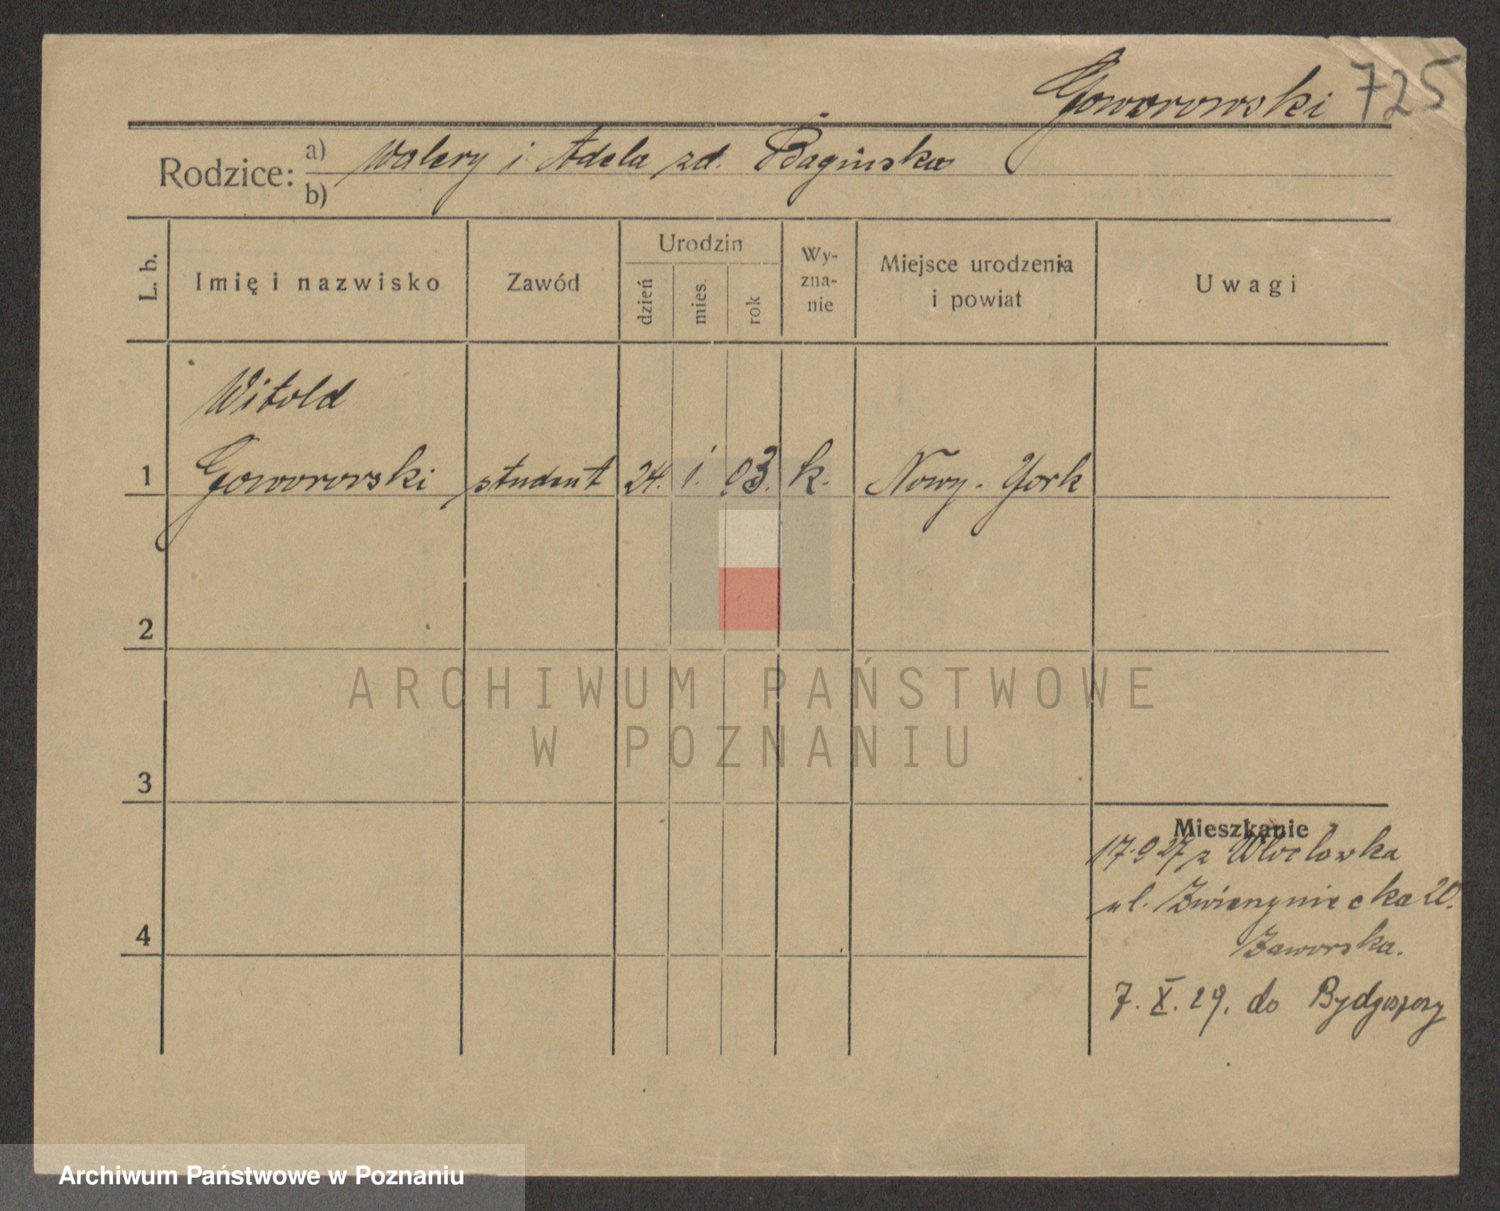 Goworowski 725
Rodzice: a) Walery i Adela zd. Bagińska
b)
L. b.
Imię i nazwisko
Zawód
Urodzin
dzień
mies.
rok
Wy-
zna-
nie
Miejsce urodzenia
i powiat
Uwagi
Witold
1 Goworovski student 24. i. 03. k. Nowy-York
2
ARCHIWUM PAŃSTWOWE
W POZNANIU
3
Mieszkanie
17.9 27 z Włocławka
ul. Zwierzyniecka 20.
Jaworska.
4
7. X. 29. do Bydgoszczy
Archiwum Państwowe w Poznaniu